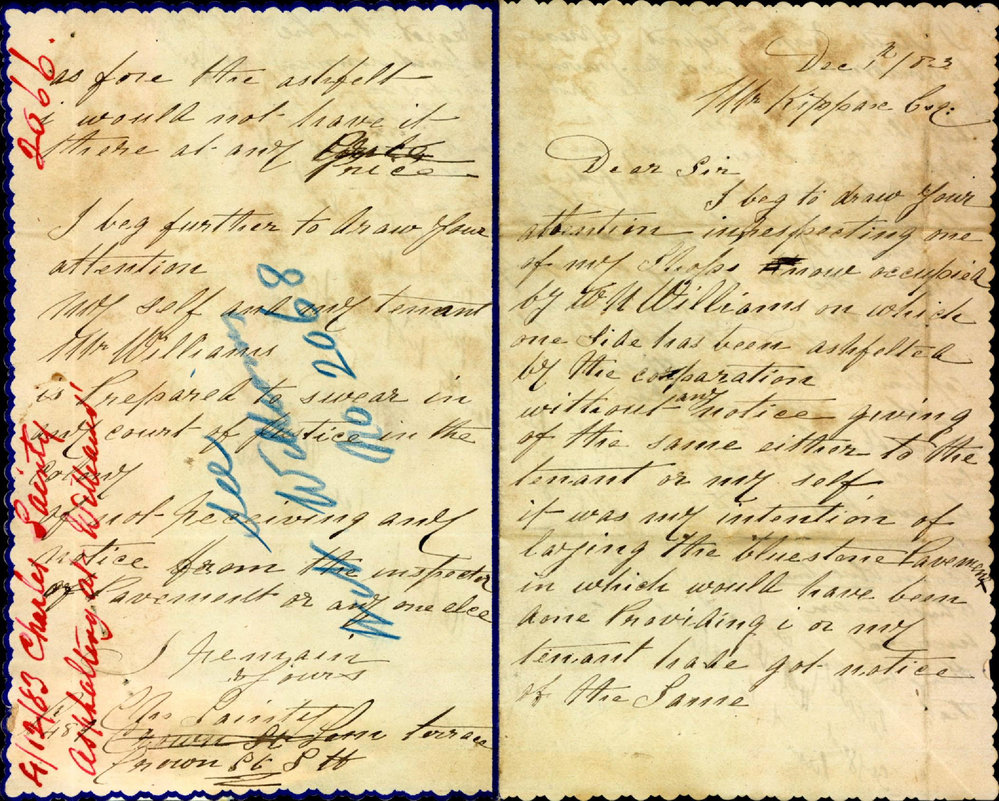 Dec 1st/83
Mr Kippax Esq:
Dear Sir
I beg to draw your
attention in respecting one
of my Shops now occupied
by W N Williams on which
one Side has been ashfelted
by the corparation
without any notice giving
of the same either to the
tenant or my self
it was my intention of
laying the bluestone Pavement
in which would have been
done Providing i or my
tenant hade got notice
of the Same
as fore the ashfelt
i would not have it
there at any
Price
I beg further to draw your
attention
my self and my tenant
Mr Williams
is Prepared to swear in
any court of Justice in the
Colony
of not Receiving any
notice from the inspector
of Pavement or any one elce
I Remain
yours
Chs Lainty
Crown St terrace
Crown St S H
2066.
4/12/83 Charles Lainty
Asphalting at Williams'
See
W N Williams
No 2068